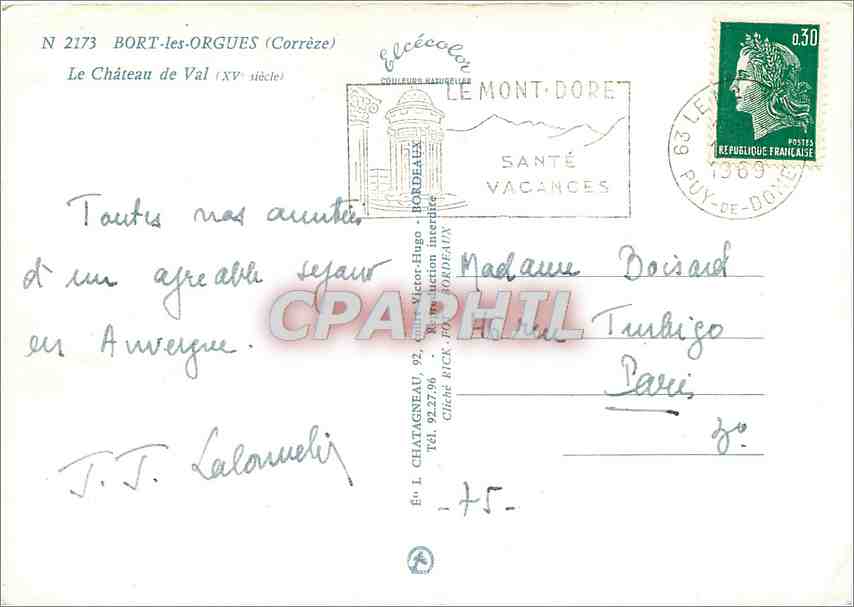 N 2173 BORT-les-ORGUES (Corrèze)
Le Château de Val (XVe siècle)
Elcécolor
COULEURS NATURELLES
LE MONT-DORE
SANTÉ
VACANCES
63 LE
1969
PUY-DE-DOME
0.30
POSTES
REPUBLIQUE FRANÇAISE
Toutes nos amitiés
d'un agréable séjour
en Auvergne.
J. J.
Éts L. CHATAGNEAU, 92, cours Victor-Hugo - BORDEAUX
Tél. 92.27.96 - Reproduction interdite
Cliché RICK, BORDEAUX
Madame Boisard
rue Turbigo
Paris
3e
-75-
CPAPHIL